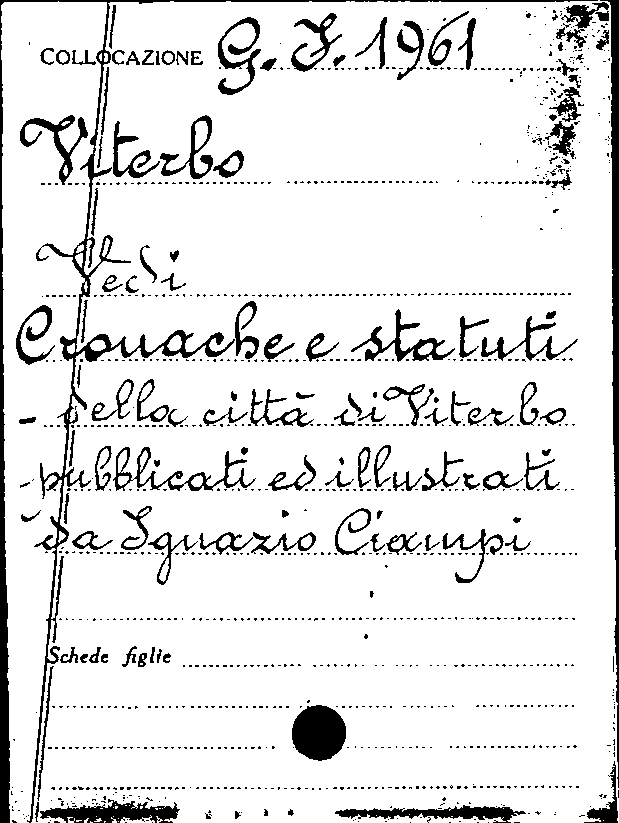 COLLOCAZIONE G. I. 1961
Viterbo
Vedi
Cronache e statuti
- della città di Viterbo
- pubblicati ed illustrati
da Ignazio Ciampi
Schede figlie